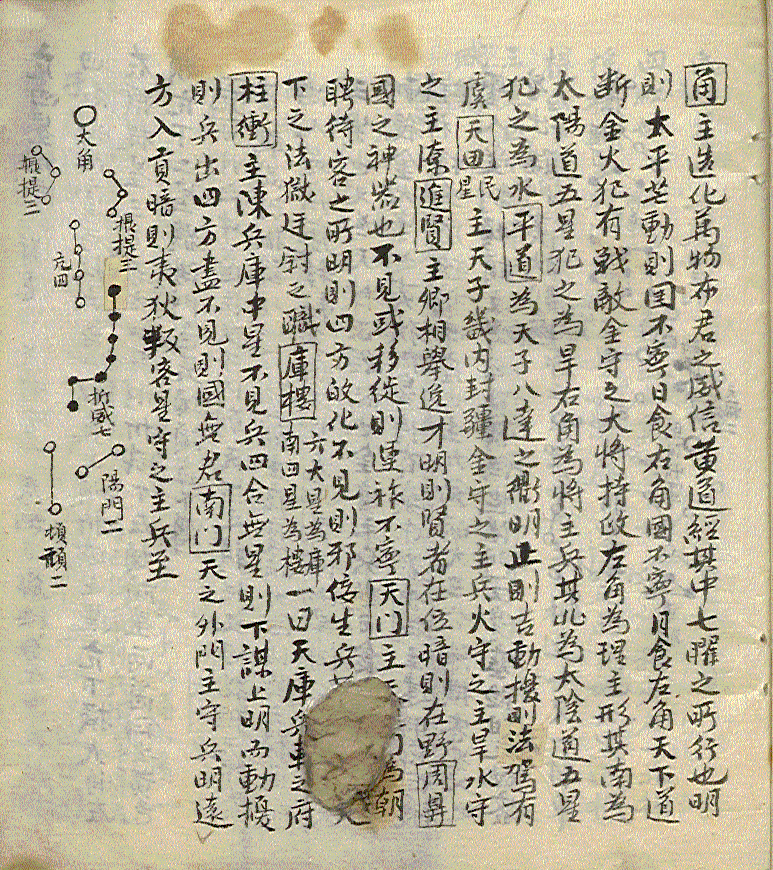 角主造化萬物布君之威信黄道經其中七曜之所行也明
則太平芒動則国不寧日食右角國不寧月食左角天下道
断金火犯有戰敵金守之大將持政左角為理主形其南為
太陽道五星犯之為旱右角為將主兵其北為太陰道五星
犯之為水平道為天子八達之衢明正則吉動擾則法駕有
虞天田民星主天子畿内封疆金守之主兵火守之主旱水守
之主潦進賢主卿相舉逸才明則賢者在位暗則在野周鼎
國之神器也不見或移徙則運祚不寧天门主門為朝
聘待客之所明則四方的化不見則邪佞生兵
下之法獄廷尉之職庫樓六大星為庫南四星為樓一曰天庫兵車之府
柱衡主陳兵庫中星不見兵四合無星則下謀上明而動擾
則兵出四方盡不見則國無君南门天之外門主守兵明遠
方入貢暗則夷狄叛客星守之主兵至
大角
攝提三
攝提三
亢四
折威七
陽門二
頓頑二